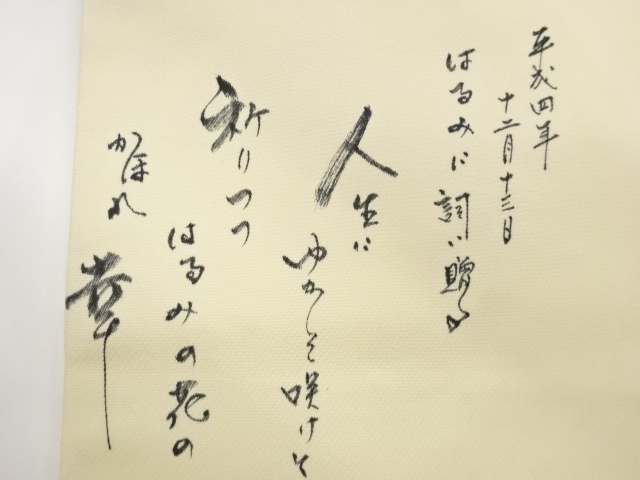 平成四年
十二月十三日
はるみに詞を贈る
人生に
ゆかしく咲けと
祈りつつ
はるみの花の
かほれ
幸